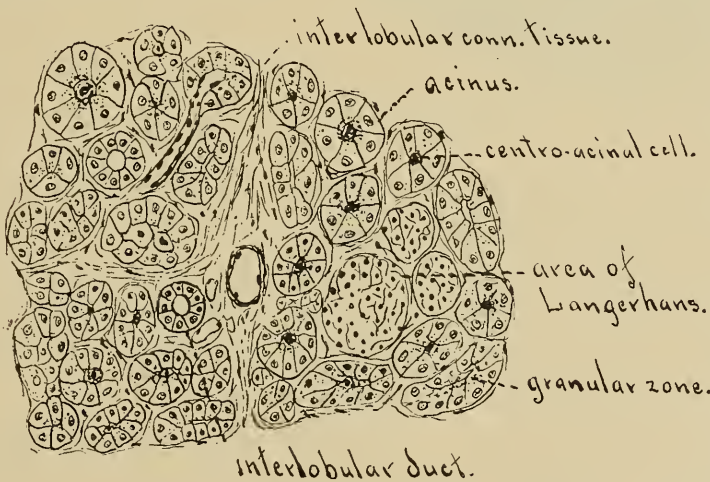 interlobular conn. tissue.
acinus.
centro-acinal cell.
area of
Langerhans.
granular zone.
interlobular duct.